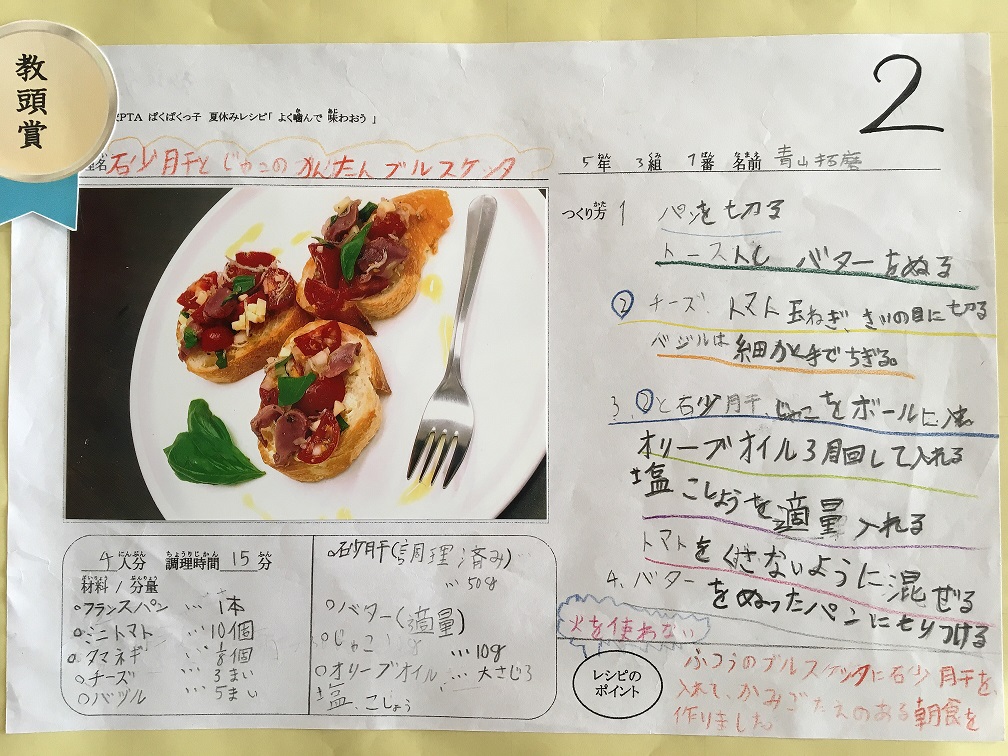 教頭賞
2
PTA ぱくぱくっ子 夏休みレシピ「よく噛んで 味わおう」
名 石少月干と じゃこの かんたん ブルスケッタ
5年 3組 1番 名前 青山 拓磨
つくり方 1 パンを切る
トーストし バターをぬる
② チーズ、トマト 玉ねぎ、さいの目に切る
バジルは 細かく手でちぎる。
3、②と石少月干、じゃこをボールに入れ
オリーブオイル3周回して入れる
塩 こしょうを適量 入れる
トマトをくずさないように混ぜる
4、バターをぬったパンにもりつける
火を使わない
レシピの
ポイント
ふつうのブルスケッタに石少月干を
入れて、かみごたえのある朝食を
作りました
4人分 調理時間 15分
材料/分量
○フランスパン … 1本
○ミニトマト … 10個
○タマネギ … 個
○チーズ … 3まい
○バヅル … 5まい
○石少月干(調理済み)
… 50g
○バター(適量)
○じゃこ … 10g
○オリーブオイル … 大さじ3
塩、こしょう